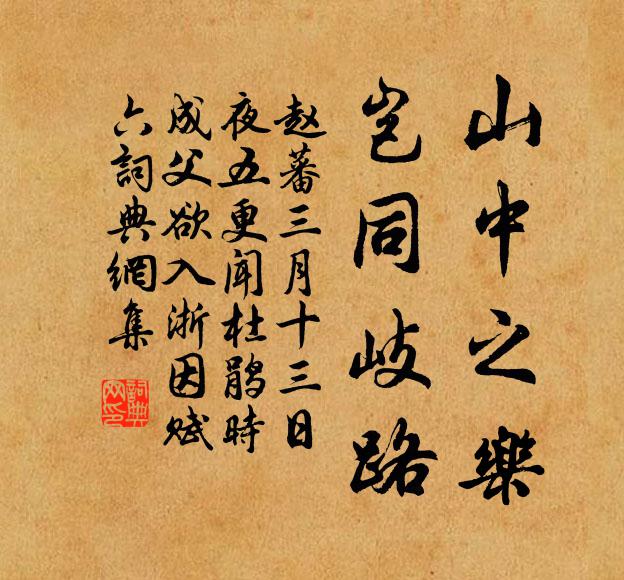 山中之樂
岂同歧路
赵蕃三月十三日
夜五更闻杜鹃時
成父欲入浙因赋
六詞典網集
詞典
网印